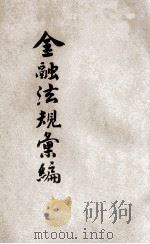 金融法規彙編
耕狗
mtoou.info